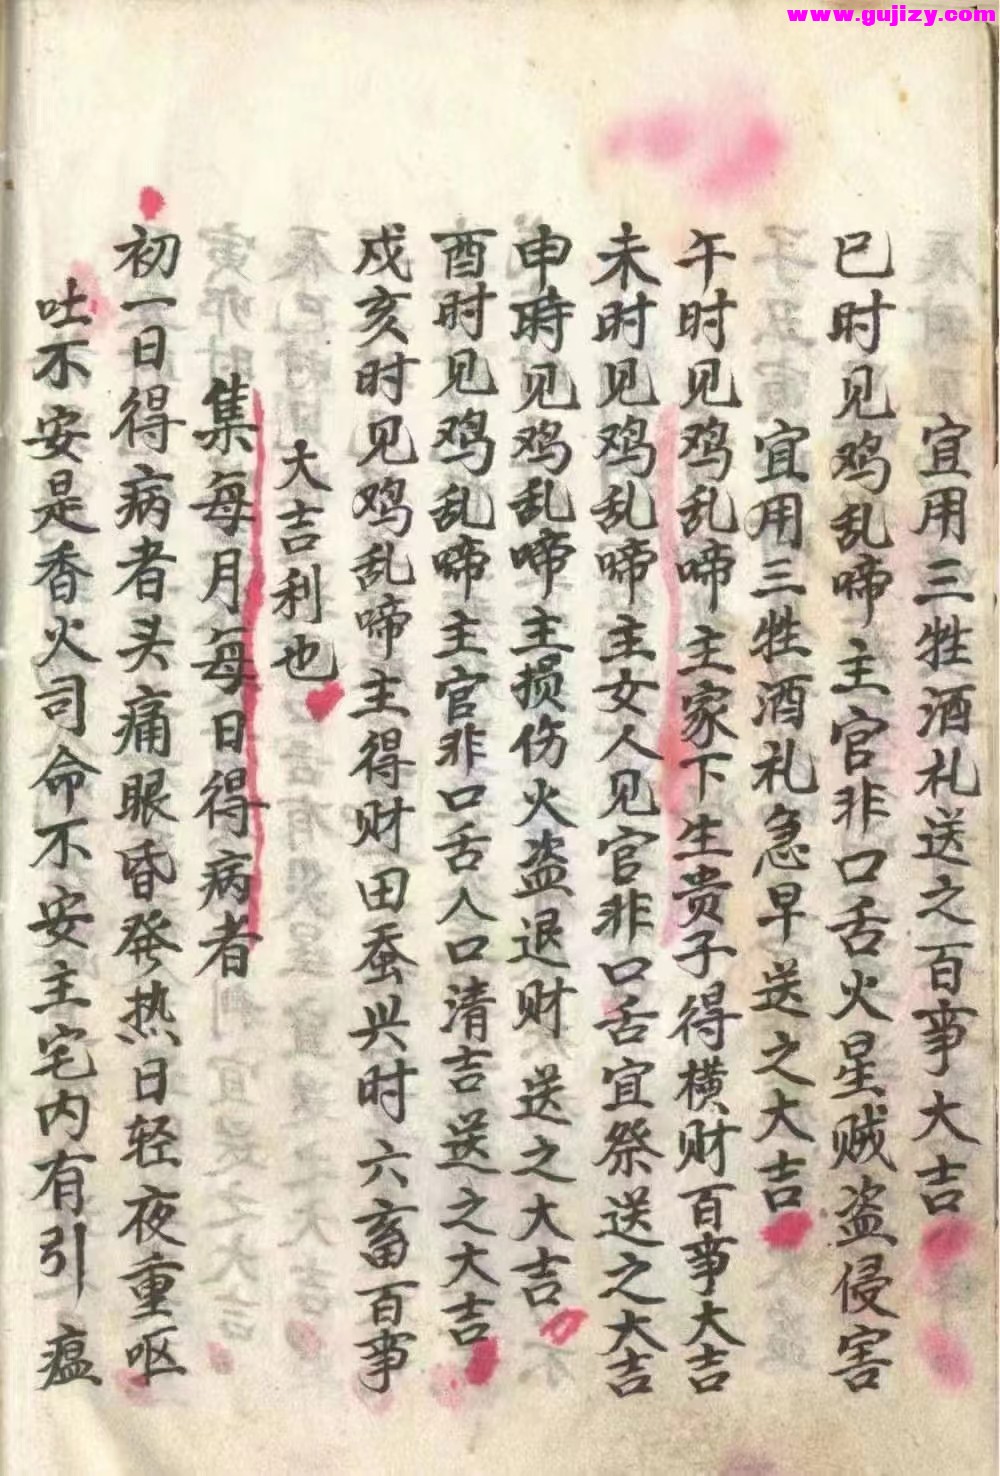 www.gujizy.com
宜用三牲酒礼送之百事大吉
巳时见鸡乱啼主官非口舌火星贼盗侵害
宜用三牲酒礼急早送之大吉
午时见鸡乱啼主家下生贵子得横财百事大吉
未时见鸡乱啼主女人见官非口舌宜祭送之大吉
申時见鸡乱啼主损伤火盗退财送之大吉
酉时见鸡乱啼主官非口舌人口清吉送之大吉
戍亥时见鸡乱啼主得财田蚕兴时六畜百事
大吉利也
集每月每日得病者
初一日得病者头痛眼昏發热日轻夜重呕
吐不安是香火司命不安主宅内有引瘟